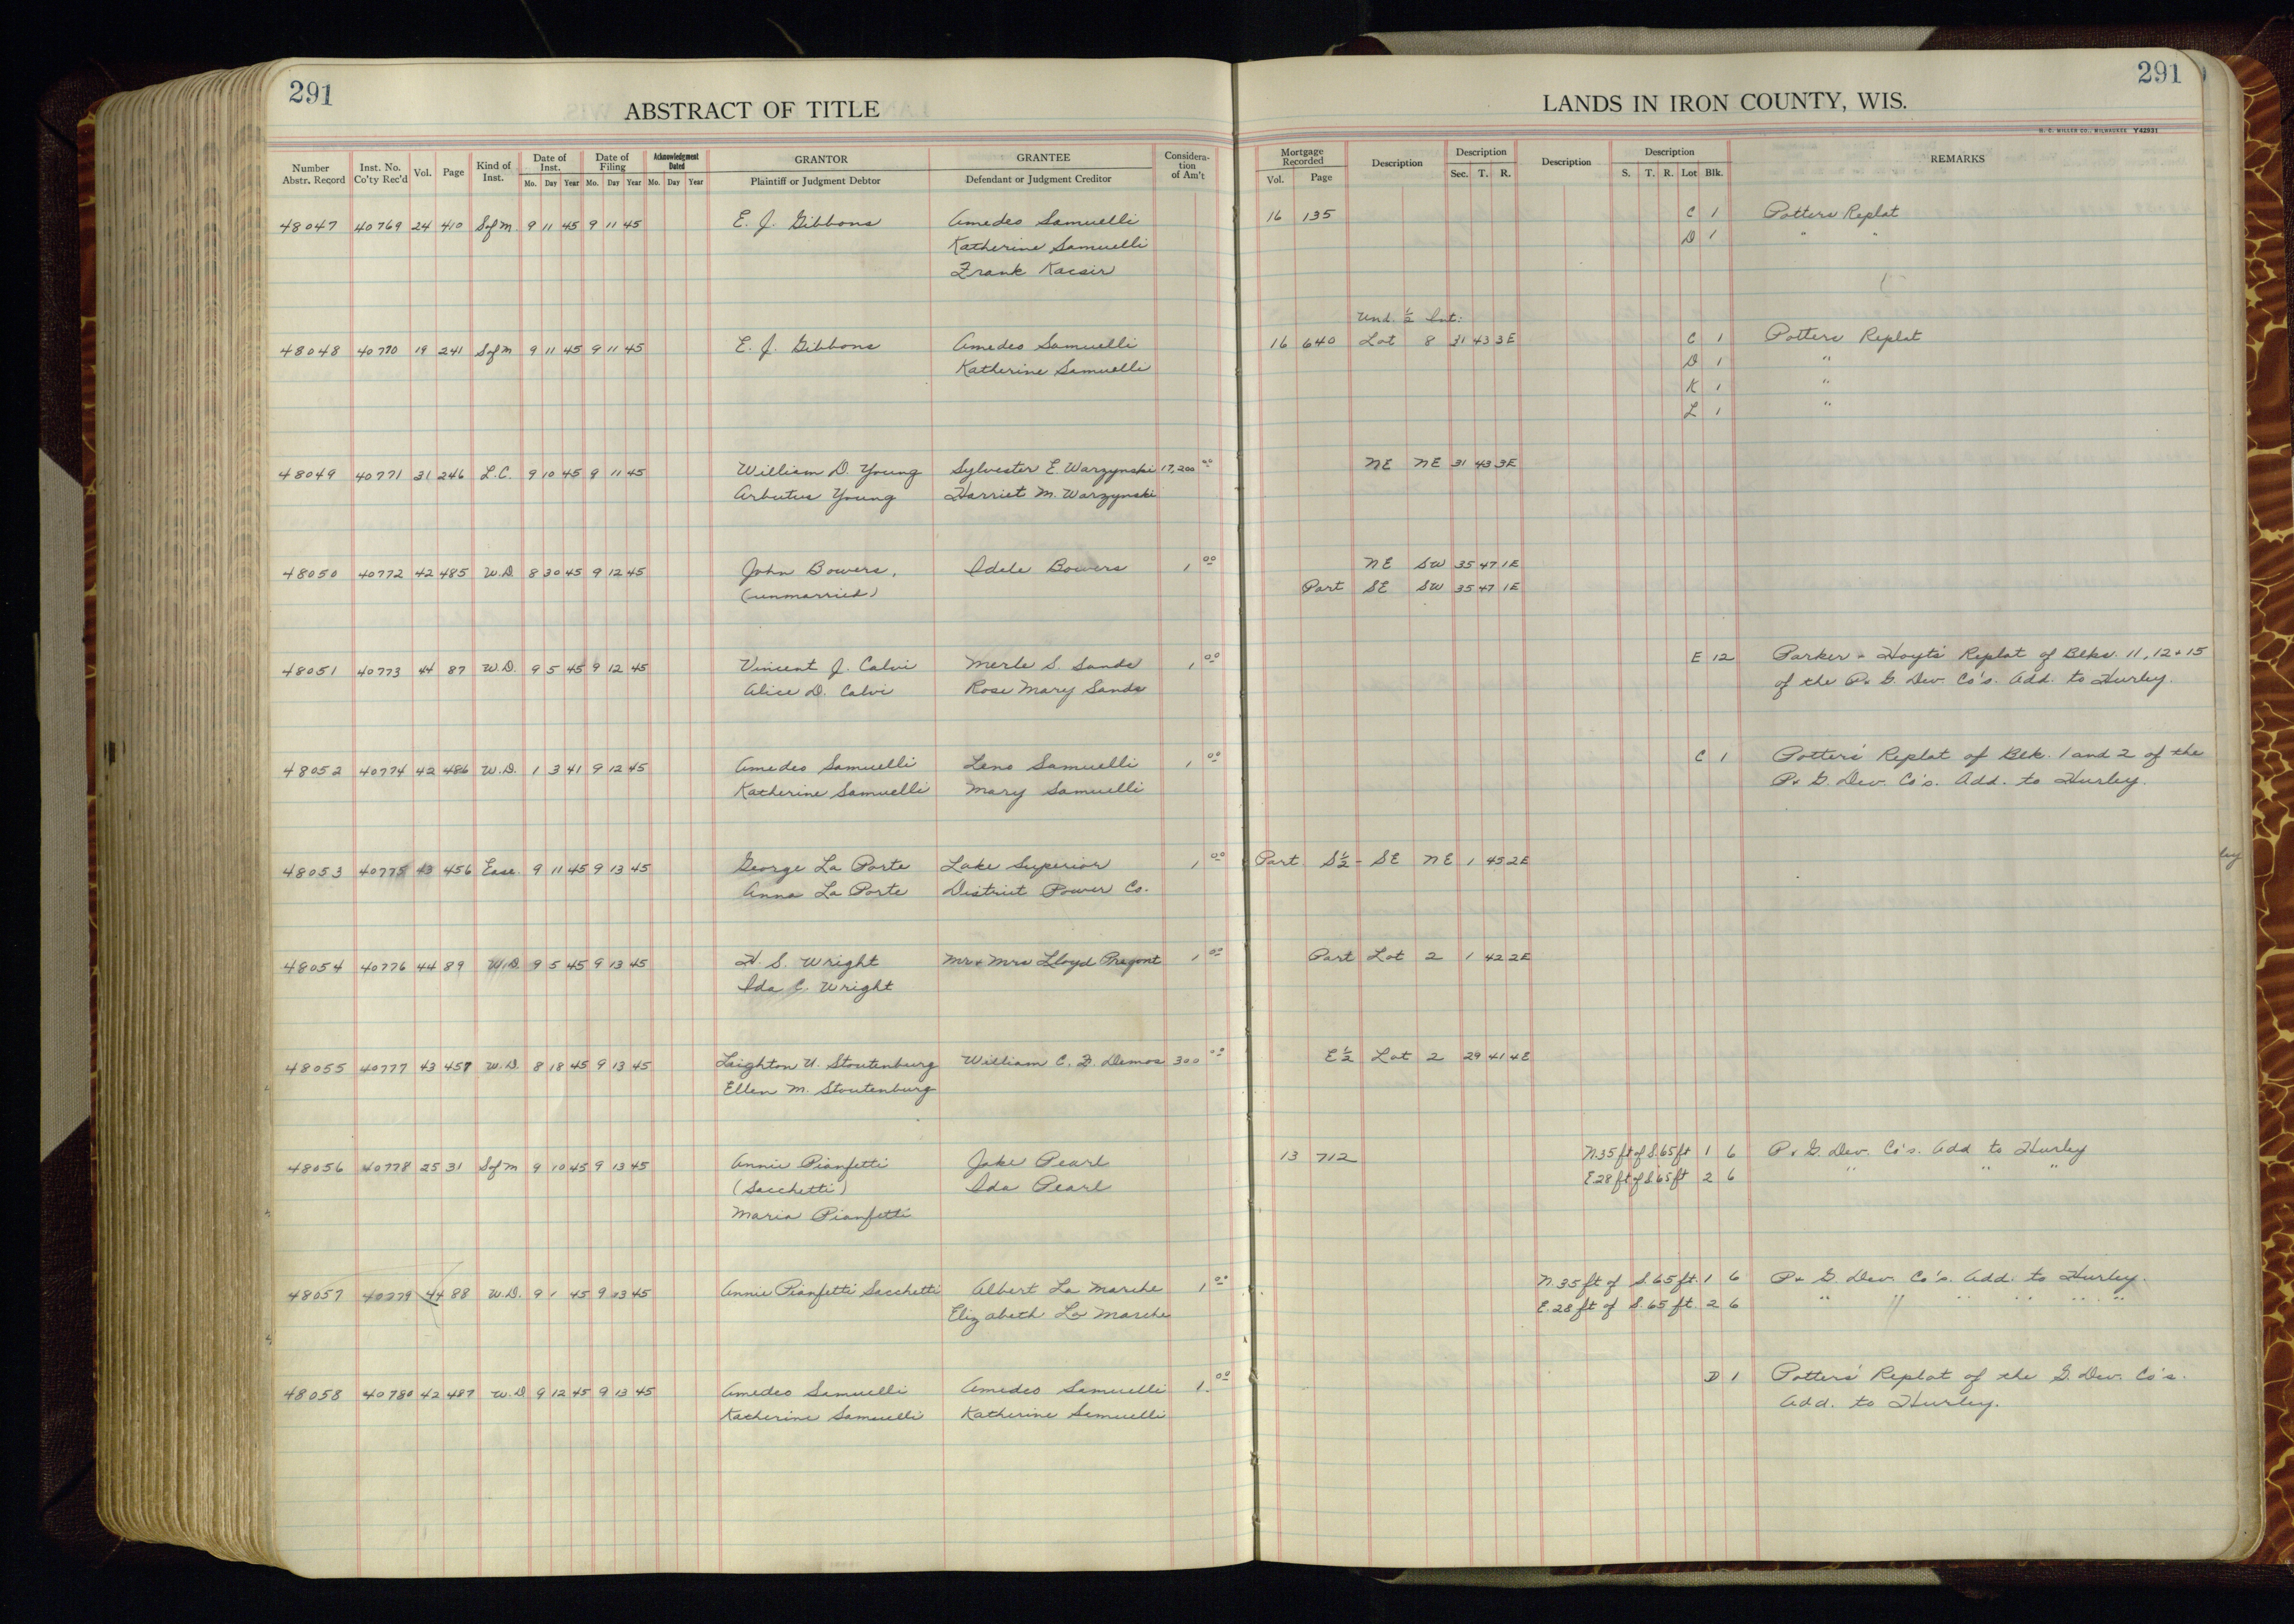 291
ABSTRACT OF TITLE
LANDS IN IRON COUNTY, WIS.
291
H. C. MILLER CO., MILWAUKEE Y42931
Number Abstr. Record | Inst. No. Co'ty Rec'd | Vol. | Page | Kind of Inst. | Date of Inst. Mo. Day Year | Date of Filing Mo. Day Year | Acknowledgment Dated Mo. Day Year | GRANTOR Plaintiff or Judgment Debtor | GRANTEE Defendant or Judgment Creditor | Considera-tion of Am't | Mortgage Recorded Vol. Page | Description | Description Sec. T. R. | Description | Description S. T. R. Lot Blk. | REMARKS
48047 40769 24 410 SofM 9 11 45 9 11 45 E. J. Gibbons Amedeo Samuelli 16 135 C 1 Potters Replat
Katherine Samuelli D 1 " "
Frank Kacsir
Und. ½ Int.
48048 40770 19 241 SofM 9 11 45 9 11 45 E. J. Gibbons Amedeo Samuelli 16 640 Lot 8 31 43 3E C 1 Potters Replat
Katherine Samuelli D 1 "
K 1 "
L 1 "
48049 40771 31 246 L.C. 9 10 45 9 11 45 William D. Young Sylvester E. Warzynski 17,200 00 NE NE 31 43 3E
Arbutus Young Harriet M. Warzynski
48050 40772 42 485 W.D. 8 30 45 9 12 45 John Bowers, Idele Bowers 1 00 NE SW 35 47 1E
(unmarried) Part SE SW 35 47 1E
48051 40773 44 87 W.D. 9 5 45 9 12 45 Vincent J. Calvi Merle S. Sands 1 00 E 12 Parker + Hoyts Replat of Blks. 11, 12 + 15
Alice D. Calvi Rose Mary Sands of the P+ G. Dev. Co's. Add. to Hurley.
48052 40774 42 486 W.D. 1 3 41 9 12 45 Amedeo Samuelli Leno Samuelli 1 00 C 1 Potters' Replat of Blk. 1 and 2 of the
Katherine Samuelli Mary Samuelli P+ G. Dev. Co's. Add. to Hurley.
48053 40775 43 456 Ease. 9 11 45 9 13 45 George La Porte Lake Superior 1 00 Part S½- SE NE 1 45 2E
Anna La Porte District Power Co.
48054 40776 44 89 W.D. 9 5 45 9 13 45 H. S. Wright Mr + Mrs Lloyd Pregont 1 00 Part Lot 2 1 42 2E
Ida C. Wright
48055 40777 43 457 W.D. 8 18 45 9 13 45 Leighton U. Stoutenburg William C. F. Demos 300 00 E½ Lot 2 29 41 4E
Ellen M. Stoutenburg
48056 40778 25 31 SofM 9 10 45 9 13 45 Annie Pianfetti Jake Pearl 13 712 N.35 ft of S.65 ft 1 6 P + G. Dev. Co's. Add to Hurley
(Sacchetti) Ida Pearl E.28 ft of S.65 ft 2 6 " " "
Maria Pianfetti
48057 40779 44 88 W.D. 9 1 45 9 13 45 Annie Pianfetti Sacchetti Albert La Marche 1 00 N.35 ft of S.65 ft. 1 6 P+ G. Dev. Co's. Add. to Hurley.
Elizabeth La Marche E.28 ft of S.65 ft. 2 6 " " " " " "
48058 40780 42 487 W.D 9 12 45 9 13 45 Amedeo Samuelli Amedeo Samuelli 1. 00 D 1 Potters' Replat of the G. Dev. Co's.
Katherine Samuelli Katherine Samuelli Add. to Hurley.